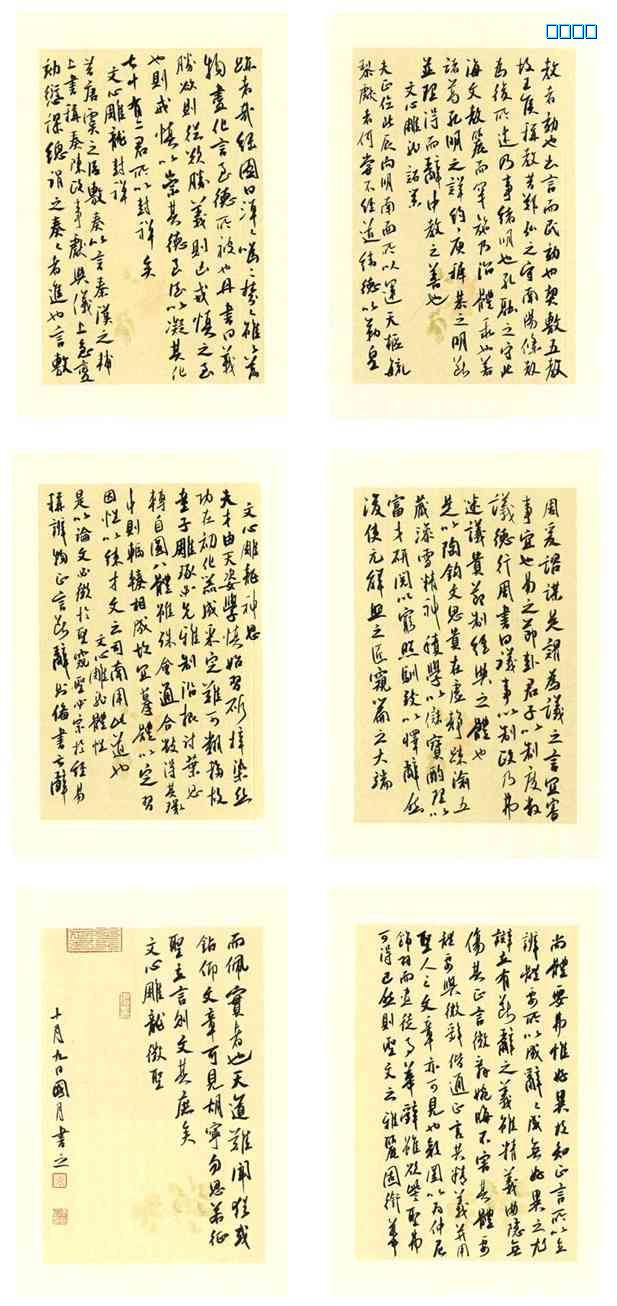 教者効也出言而民効也契敷五教
故王侯稱教昔鄭弘之守南陽條教
為後所述乃事緒明也孔融之守北
海文教麗而罕施乃治體乖也若
諸葛孔明之詳約庾稚恭之明斷
並理得而辭中教之善也
文心雕龍詔策
夫正位北辰向明南面所以運天樞毓
黎獻者何嘗不經道緯德以勒皇
跡者哉綠圖曰潬潬噅噅棼棼雉雉萬
物盡化言至德所被也丹書曰義
勝欲則從欲勝義則凶戒慎之至
也則戒慎以崇其德至德以凝其化
七十有二君所以封禪矣
文心雕龍封禪
昔唐虞之臣敷奏以言秦漢之輔
上書稱奏陳政事獻典儀上急變
劾愆謬總謂之奏奏者進也言敷
周爰諮謀是謂為議議之言宜審
事宜也易之節卦君子以制度數
議德行周書曰議事以制政乃弗
迷議貴節制經典之體也
是以陶鈞文思貴在虛靜疏瀹五
藏澡雪精神積學以儲寶酌理以
富才研閱以窮照馴致以懌辭然
後使元解之匠窺篇之大端
文心雕龍神思
夫才由天資學慎始習斫梓染絲
功在初化器成采定難可翻移故
童子雕琢必先雅制沿根討葉思
轉自圓八體雖殊會通合數得其環
中則輻輳相成故宜摹體以定習
因性以練才文之司南用此道也
文心雕龍體性
是以論文必徵於聖窺聖必宗於經易
稱辨物正言斷辭則備書云辭
尚體要弗惟好異故知正言所以立
辯體要所以成辭辭成無好異之尤
辯立有斷辭之義雖精義曲隱無
傷其正言微辭婉晦不害其體要
體要與微辭偕通正言共精義並用
聖人之文章亦可見也顏闔以為仲尼
飾羽而畫從事華辭雖欲訾聖弗
可得已然則聖文之雅麗固銜華
而佩實者也天道難聞猶或
鑽仰文章可見胡寧勿思若徵
聖立言則文其庶矣
文心雕龍徵聖
十月九日國月書之